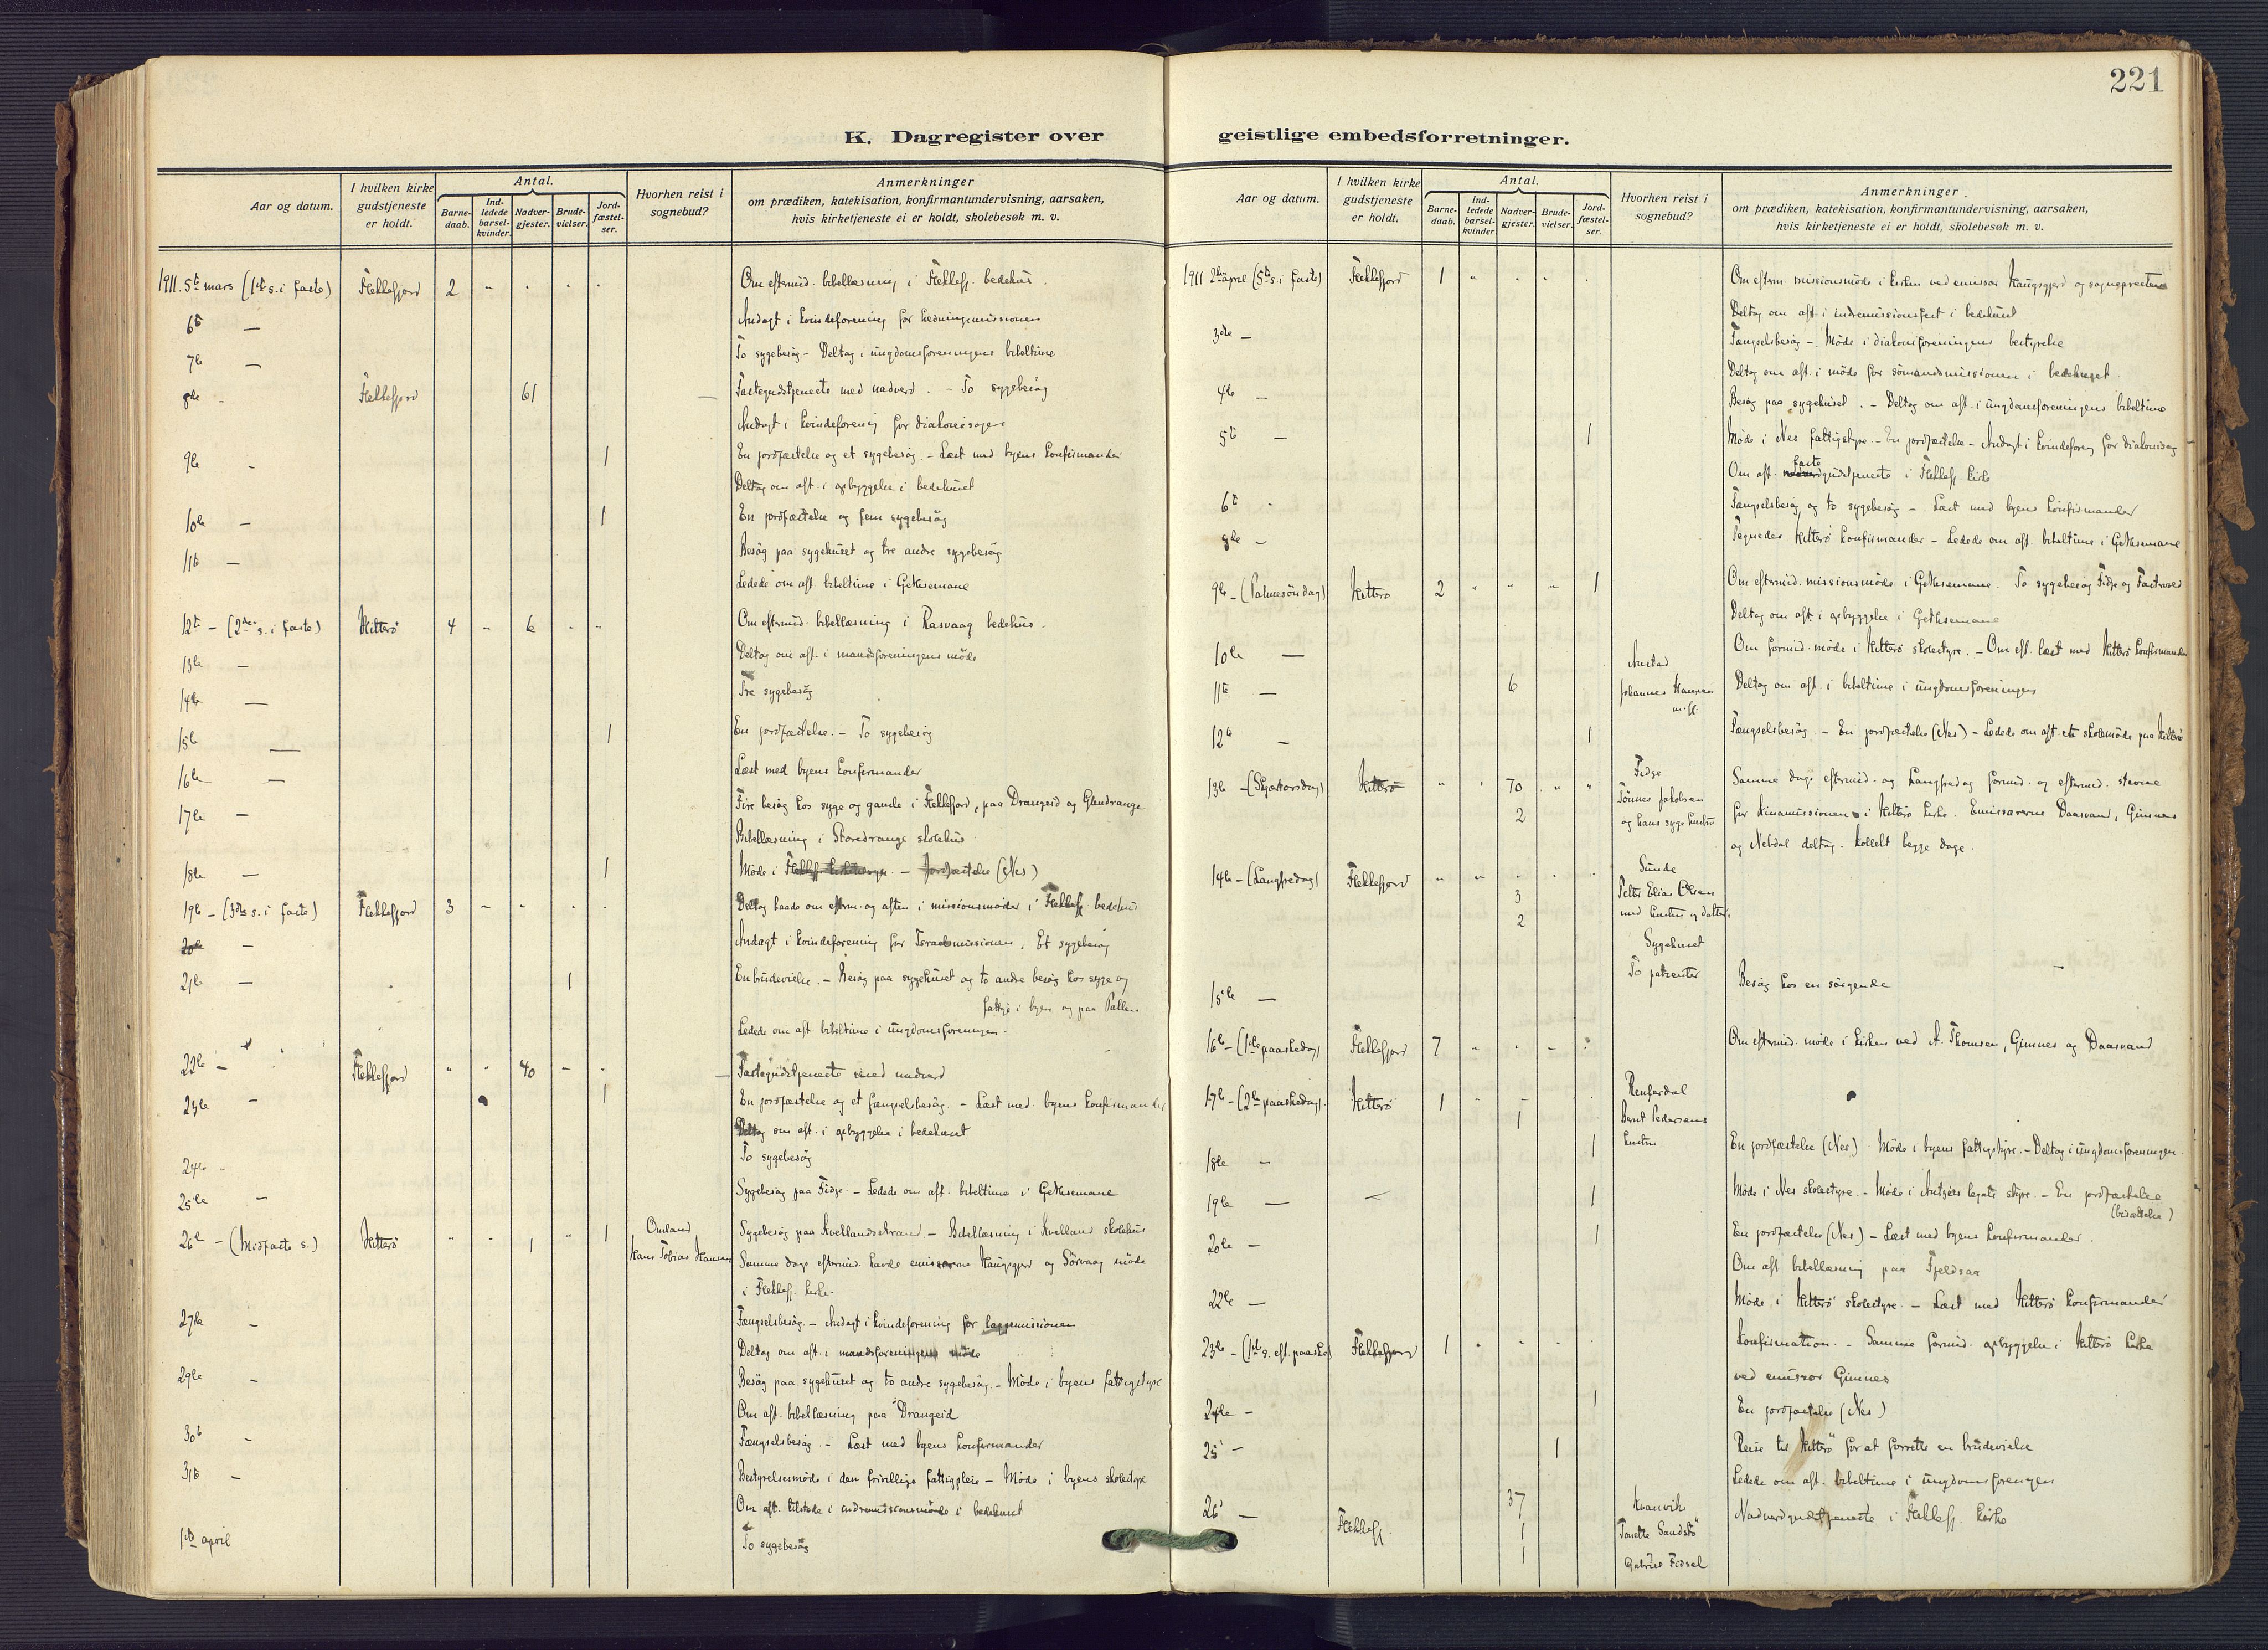 221
K. Dagregister over geistlige embedsforretninger.
Aar og datum.
I hvilken kirke gudstjeneste er holdt.
Antal.
Barne-daab.
Ind-ledede barsel-kvinder.
Nadver-gjester.
Brude-vielser.
Jord-fæstel-ser.
Hvorhen reist i sognebud?
Anmerkninger
om prædiken, katekisation, konfirmantundervisning, aarsaken,
hvis kirketjeneste ei er holdt, skolebesøk m. v.
1911. 5te mars (1ste s. i faste) Flekkefjord 2 " . . . Om eftermid. bibellæsning i Flekkefj. bedehus.
6te — Andagt i kvindeforening for hedningemissionen
7de — To sygebesøg - Deltog i ungdomsforeningens bibeltime
8de - Flekkefjord 61 Fastegudstjeneste med nadverd. - To sygebesøg
Andagt i kvindeforening for diakonisagen
9de - 1 En jordfæstelse og et sygebesøg. - Læst med byens konfirmander
Deltog om aft. i opbyggelse i bedehuset
10de — 1 En jordfæstelse og fem sygebesøg
11te — Besøg paa sygehuset og tre andre sygebesøg
Ledede om aft. bibeltime i Gethsemane
12te - (2den s. i faste) Hitterø 4 " 6 - " Om eftermid. bibellæsning i Rasvaag bedehus.
13de — Deltog om aft. i mandsforeningens møde
14de — Tre sygebesøg
15de — 1 En jordfæstelse. - To sygebesøg
16de — Læst med byens konfirmander
17de — Fire besøg hos syge og gamle i Flekkefjord, paa Drangeid og Glendrange
Bibellæsning i Storedrange skolehus
18de — 1 Møde i Flekkefj. - Jordfæstelse (Nes)
19de - (3die s. i faste) Flekkefjord 3 - - . . Deltog baade om efterm. og aften i missionsmøder i Flekkefj. bedehus
20de — Andagt i kvindeforening for Israelsmissionen. Et sygebesøg
21de — 1 En brudevielse. - Besøg paa sygehuset og to andre besøg hos syge og
fattige i byen og paa
Ledede om aft. bibeltime i ungdomsforeningen.
22de — Flekkefjord " - 40 - . Fastegudstjeneste med nadverd
23de - 1 En jordfæstelse og et fængselsbesøg. - Læst med byens konfirmander
Deltog om aft. i opbyggelse i bedehuset
24de - To sygebesøg
25de — Sygebesøg paa Fidse. - Ledede om aft. bibeltime i Gethsemane
26de - (Midfaste s.) Hitterø " " 1 " 1 Omland Sygebesøg paa Kvellandsstrand. - Bibellæsning i Kvelland skolehus
Hans Tobias Hansen Samme dags eftermid. havde emissærerne Haugsgjerd og Sørvaag møde
i Flekkefj. kirke.
27de - Fængselsbesøg. - Andagt i kvindeforening for lappemissionen
Deltog om aft. i mandsforeningens møde
29de - Besøg paa sygehuset og to andre sygebesøg. - Møde i byens fattigstyre
Om aft. bibellæsning paa Drangeid
30te - Fængselsbesøg. - Læst med byens konfirmander
31te - Bestyrelsesmøde i den frivillige fattigpleie - Møde i byens skolestyre
Om aft. tilstede i indremissionsmøde i bedehuset
1ste april To sygebesøg
Aar og datum.
I hvilken kirke gudstjeneste er holdt.
Antal.
Barne-daab.
Ind-ledede barsel-kvinder
Nadver-gjester.
Brude-vielser.
Jord-fæstel-ser.
Hvorhen reist i sognebud?
Anmerkninger
om prædiken, katekisation, konfirmantundervisning, aarsaken,
hvis kirketjeneste ei er holdt, skolebesøk m. v.
1911 2den april (5te s. i faste) Flekkefjord 1 " . - . Om efterm. missionsmøde i kirken ved emissær Haugsgjerd og sognepresten
Deltog om aft. i indremissionsfest i bedehuset
3die — Fængselsbesøg - Møde i diakoniforeningens bestyrelse
Deltog om aft. i møde for sømandsmissionen i bedehuset.
4de — Besøg paa sygehuset. - Deltog om aft. i ungdomsforeningens bibeltime
5te — 1 Møde i Nes fattigstyre. - En jordfæstelse - Andagt i kvindeforening for diakonisag
Om aft. fastegudstjeneste i Flekkefj. kirke
6te - Fængselsbesøg og to sygebesøg - Læst med byens konfirmander
8de - Tegnedes Hitterø konfirmander - Ledede om aft. bibeltime i Gethsemane
9de - (Palmesøndag) Hitterø 2 " " " 1 Om eftermid. missionsmøde i Gethsemane. To sygebesøg Fidse og
Deltog om aft. i opbyggelse i Gethsemane
10de — Om formid. møde i Hitterø skolestyre. - Om eft. læst med Hitterø konfirmander
11te — 6 Anstad Johannes Hansen m. fl. Deltog om aft. i bibeltime i ungdomsforeningen
12te — 1 Fængselsbesøg. - En jordfæstelse (Nes) - Ledede om aft. et skolemøde paa Hitterø
13de - (Skjærtorsdag) Hitterø " " 70 " " Fidse Samme dags eftermid. og Langfredag formid. og eftermid. stevne
2 Tønnes Jakobsen og hans syge hustru for Kinamissionen i Hitterø kirke. Emissærerne Daasvand, Gimnes
og Nebdal deltog. Kollekt begge dage.
14de - (Langfredag) Flekkefjord " " . . . Sunde
3 Peter Elias Olsen
2 med hustru og datter.
Sygehuset
To patienter
15de — Besøg hos en sørgende
16de - (1ste paaskedag) Flekkefjord 7 - . - . Om eftermid. møde i kirken ved A. Thomsen, Gimnes og Daasvand
17de - (2den paaskedag). Hitterø 1 . - . Bernt Pedersens hustru
1
18de — 1 En jordfæstelse (Nes). Møde i byens fattigstyre. - Deltog i ungdomsforeningen.
19de — — 1 Møde i Nes skolestyre. - Møde i legats styre. - En jordfæstelse
(bisættelse)
20de — 1 En jordfæstelse (Nes) - Læst med byens konfirmander.
Om aft. bibellæsning paa Fjeldsaa
22de — Møde i Hitterø skolestyre. - Læst med Hitterø konfirmander
23de - (1ste s. eft. paaske) Flekkefjord 1 . . . . Konfirmation. - Samme formid. opbyggelse i Hitterø kirke
ved emissær Gimnes
24de — 1 En jordfæstelse (Nes)
25 — 1 Reise til Hitterø for at forrette en brudevielse
Ledede om aft. bibeltime i ungdomsforeningen
26 — Flekkefj. 37 Kvanvik Nadverdgudstjeneste i Flekkefj. kirke
1 Tonette Sandstø
1 Gabriel Fidsel